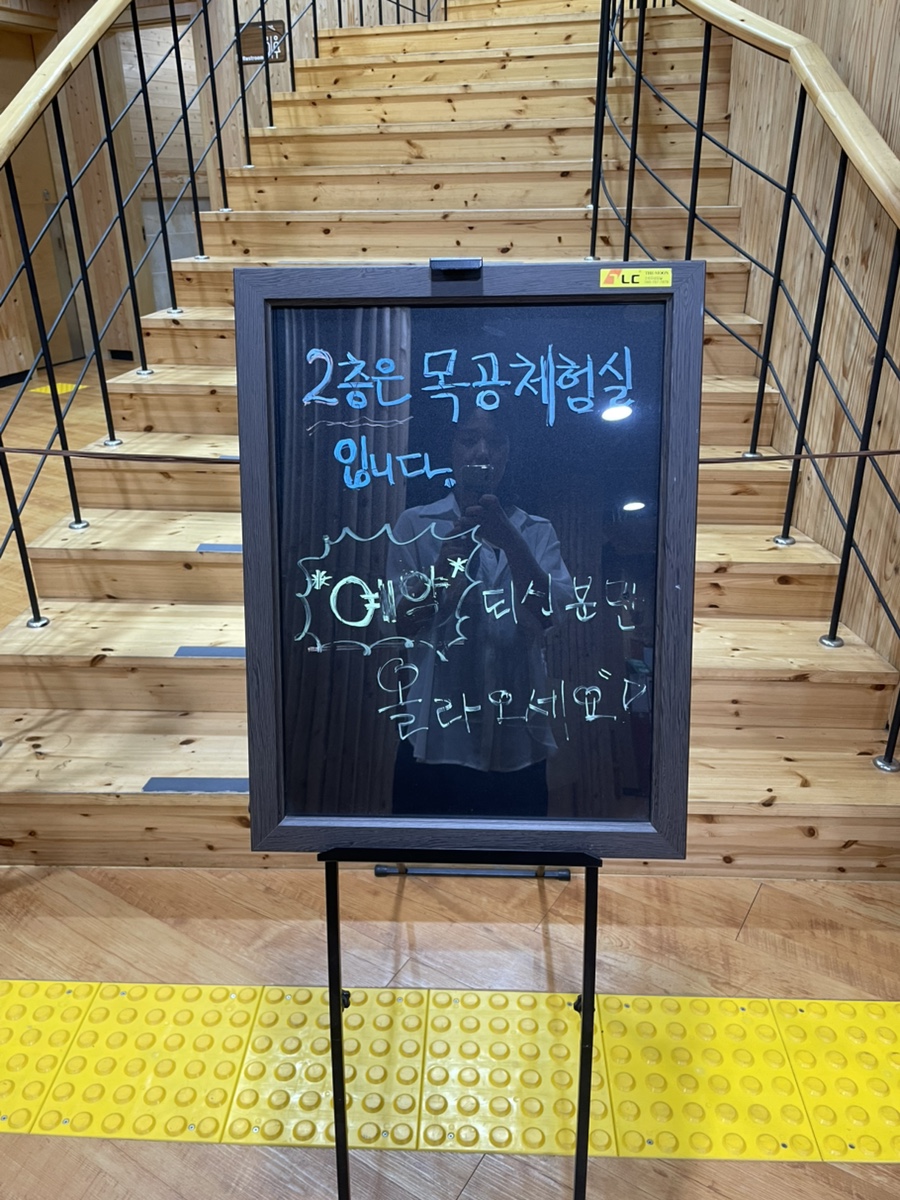 LC
2층은 목공체험실
입니다.
*예약* 되신분만
올라오세요♡